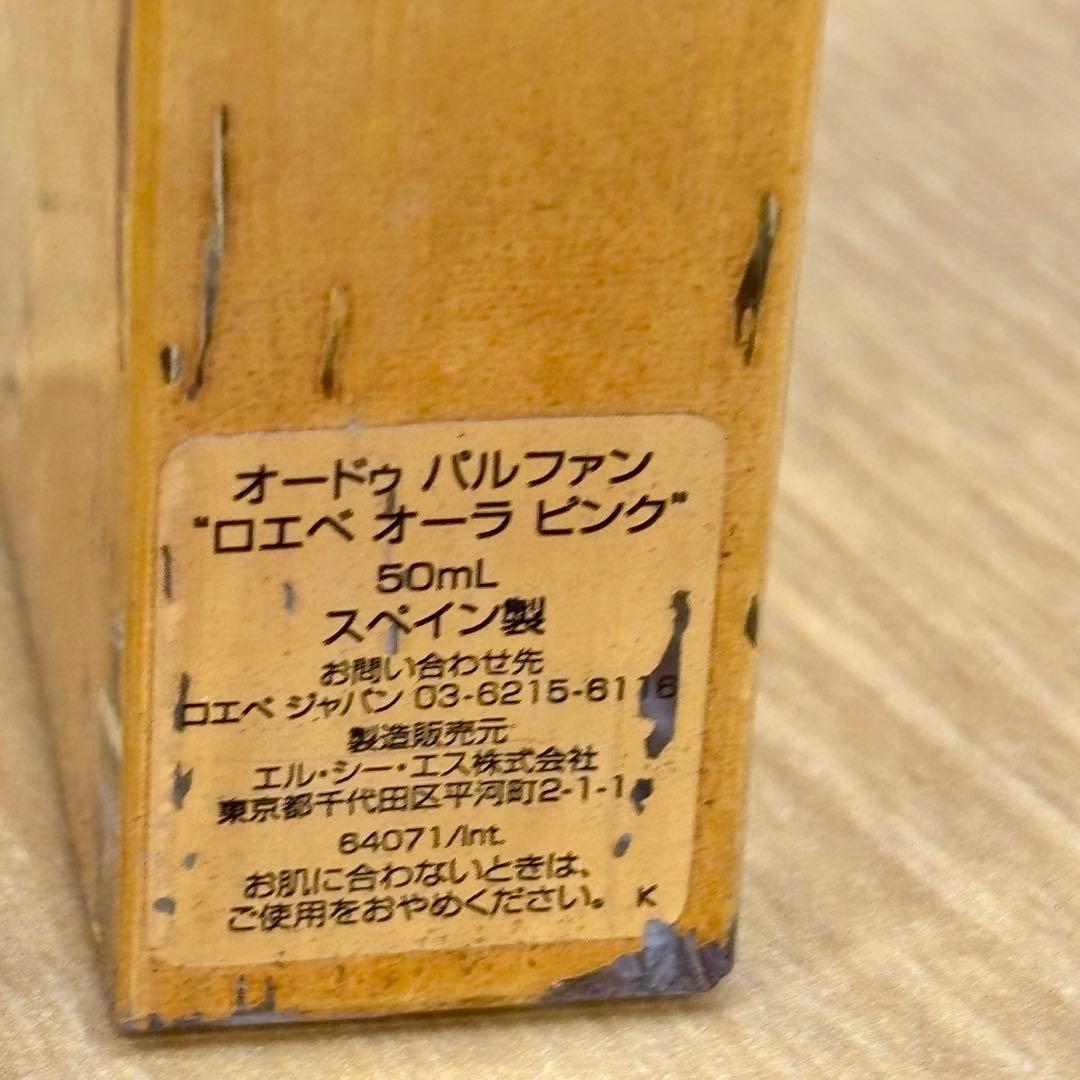 オードゥ パルファン
“ロエベ オーラ ピンク”
50mL
スペイン製
お問い合わせ先
ロエベ ジャパン 03-6215-6116
製造販売元
エル・シー・エス株式会社
東京都千代田区平河町2-1-1
64071/Int.
お肌に合わないときは、
ご使用をおやめください。 K